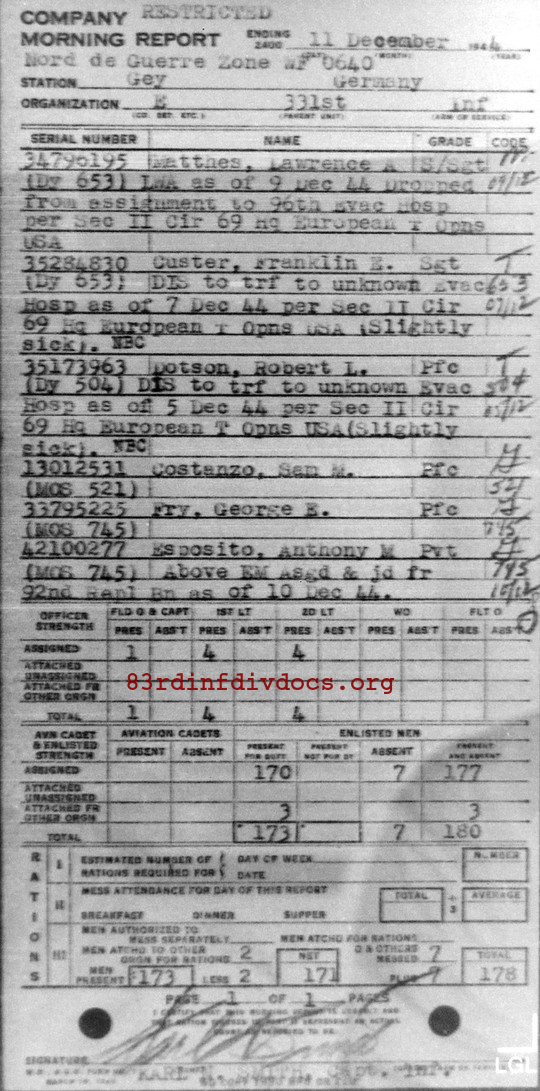 COMPANY RESTRICTED
MORNING REPORT ENDING 2400 11 December 1944
(DAY) (MONTH) (YEAR)
Nord de Guerre Zone WF 0640
STATION Gey Germany
ORGANIZATION E 331st Inf
(CO. DET. ETC.) (PARENT UNIT) (ARM OR SERVICE)
SERIAL NUMBER NAME GRADE CODE
34796195 Matthes, Lawrence A S/Sgt
(Dy 653) LWA as of 9 Dec 44 Dropped 09/12
from assignment to 96th Evac Hosp
per Sec II Cir 69 Hq European T Opns
USA
35284830 Custer, Franklin E. Sgt T
(Dy 653) DIS to trf to unknown Evac 653
Hosp as of 7 Dec 44 per Sec II Cir 07/12
69 Hq European T Opns USA (Slightly
sick). NBC
35173963 Dotson, Robert L. Pfc T
(Dy 504) DIS to trf to unknown Evac 504
Hosp as of 5 Dec 44 per Sec II Cir 05/12
69 Hq European T Opns USA(Slightly
sick). NBC
13012531 Costanzo, Sam M. Pfc
(MOS 521) 521
33795225 Fry, George E. Pfc
(MOS 745) 745
42100277 Esposito, Anthony M Pvt
(MOS 745) Above EM Asgd & jd fr 745
92nd Repl Bn as of 10 Dec 44. 10/12
OFFICER STRENGTH FLD O & CAPT 1ST LT 2D LT WO FLT O
PRES ABS'T PRES ABS'T PRES ABS'T PRES ABS'T PRES ABS'T
ASSIGNED 1 4 4
ATTACHED UNASSIGNED
ATTACHED FR OTHER ORGN
83rdinfdivdocs.org
TOTAL 1 4 4
AVN CADET & ENLISTED STRENGTH AVIATION CADETS ENLISTED MEN
PRESENT ABSENT PRESENT FOR DUTY PRESENT NOT FOR DY ABSENT PRESENT AND ABSENT
ASSIGNED 170 7 177
ATTACHED UNASSIGNED
ATTACHED FR OTHER ORGN 3 3
TOTAL 173 7 180
RATIONS
I ESTIMATED NUMBER OF RATIONS REQUIRED FOR DAY OF WEEK DATE NUMBER
II MESS ATTENDANCE FOR DAY OF THIS REPORT TOTAL ÷ 3 AVERAGE
BREAKFAST DINNER SUPPER
III MEN AUTHORIZED TO MESS SEPARATELY MEN ATCHD FOR RATIONS
MEN ATCHD TO OTHER ORGN FOR RATIONS 2 NET O & OTHERS MESSED 7 TOTAL
MEN PRESENT 173 LESS 2 171 PLUS 7 178
PAGE 1 OF 1 PAGES
SIGNATURE
KARL SMITH, Capt. Inf.
LGL